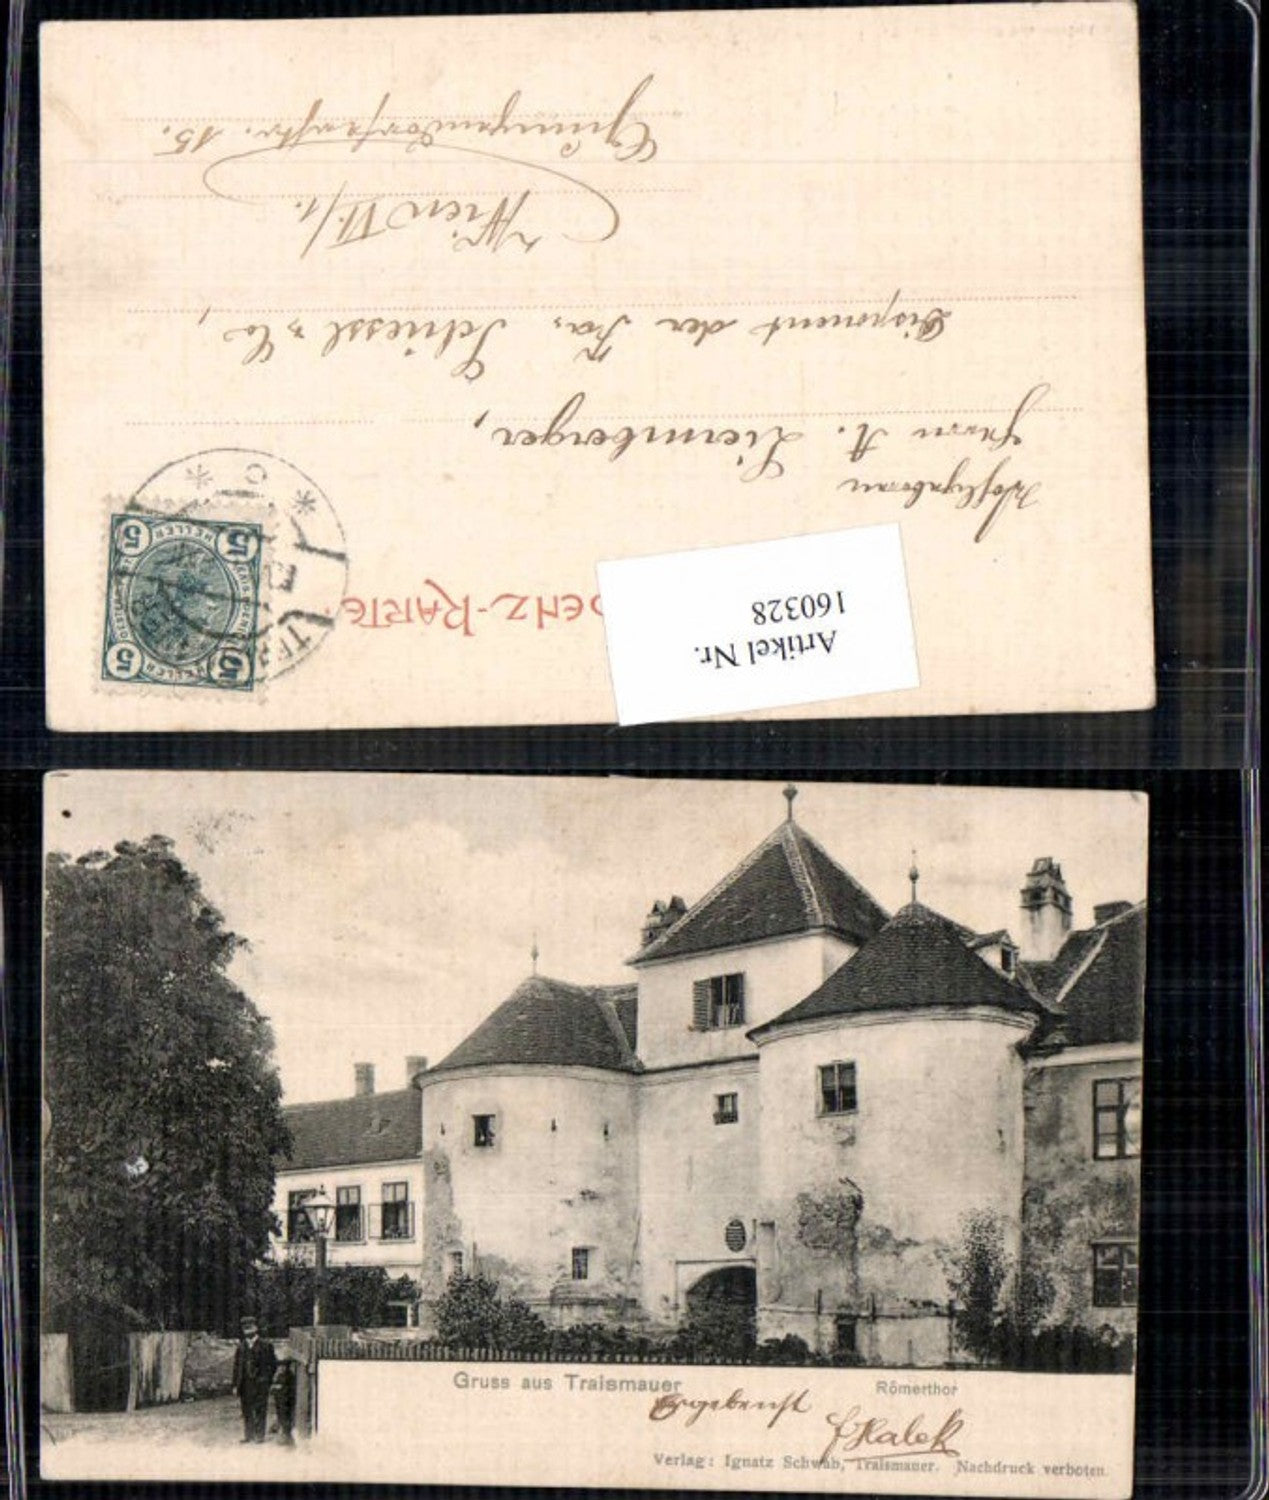 Artikel Nr.
160328
ENZ-KARTE
5 5
HELLER
5 5
HELLER
Herrn A. Liemberger,
Disponent der Fa. Schiessl & Co,
Wien VI./1.
Gumpendorferstr. 15.
Gruss aus Traismauer
Römerthor
Ergebenst
Verlag: Ignatz Schwab, Traismauer. Nachdruck verboten.